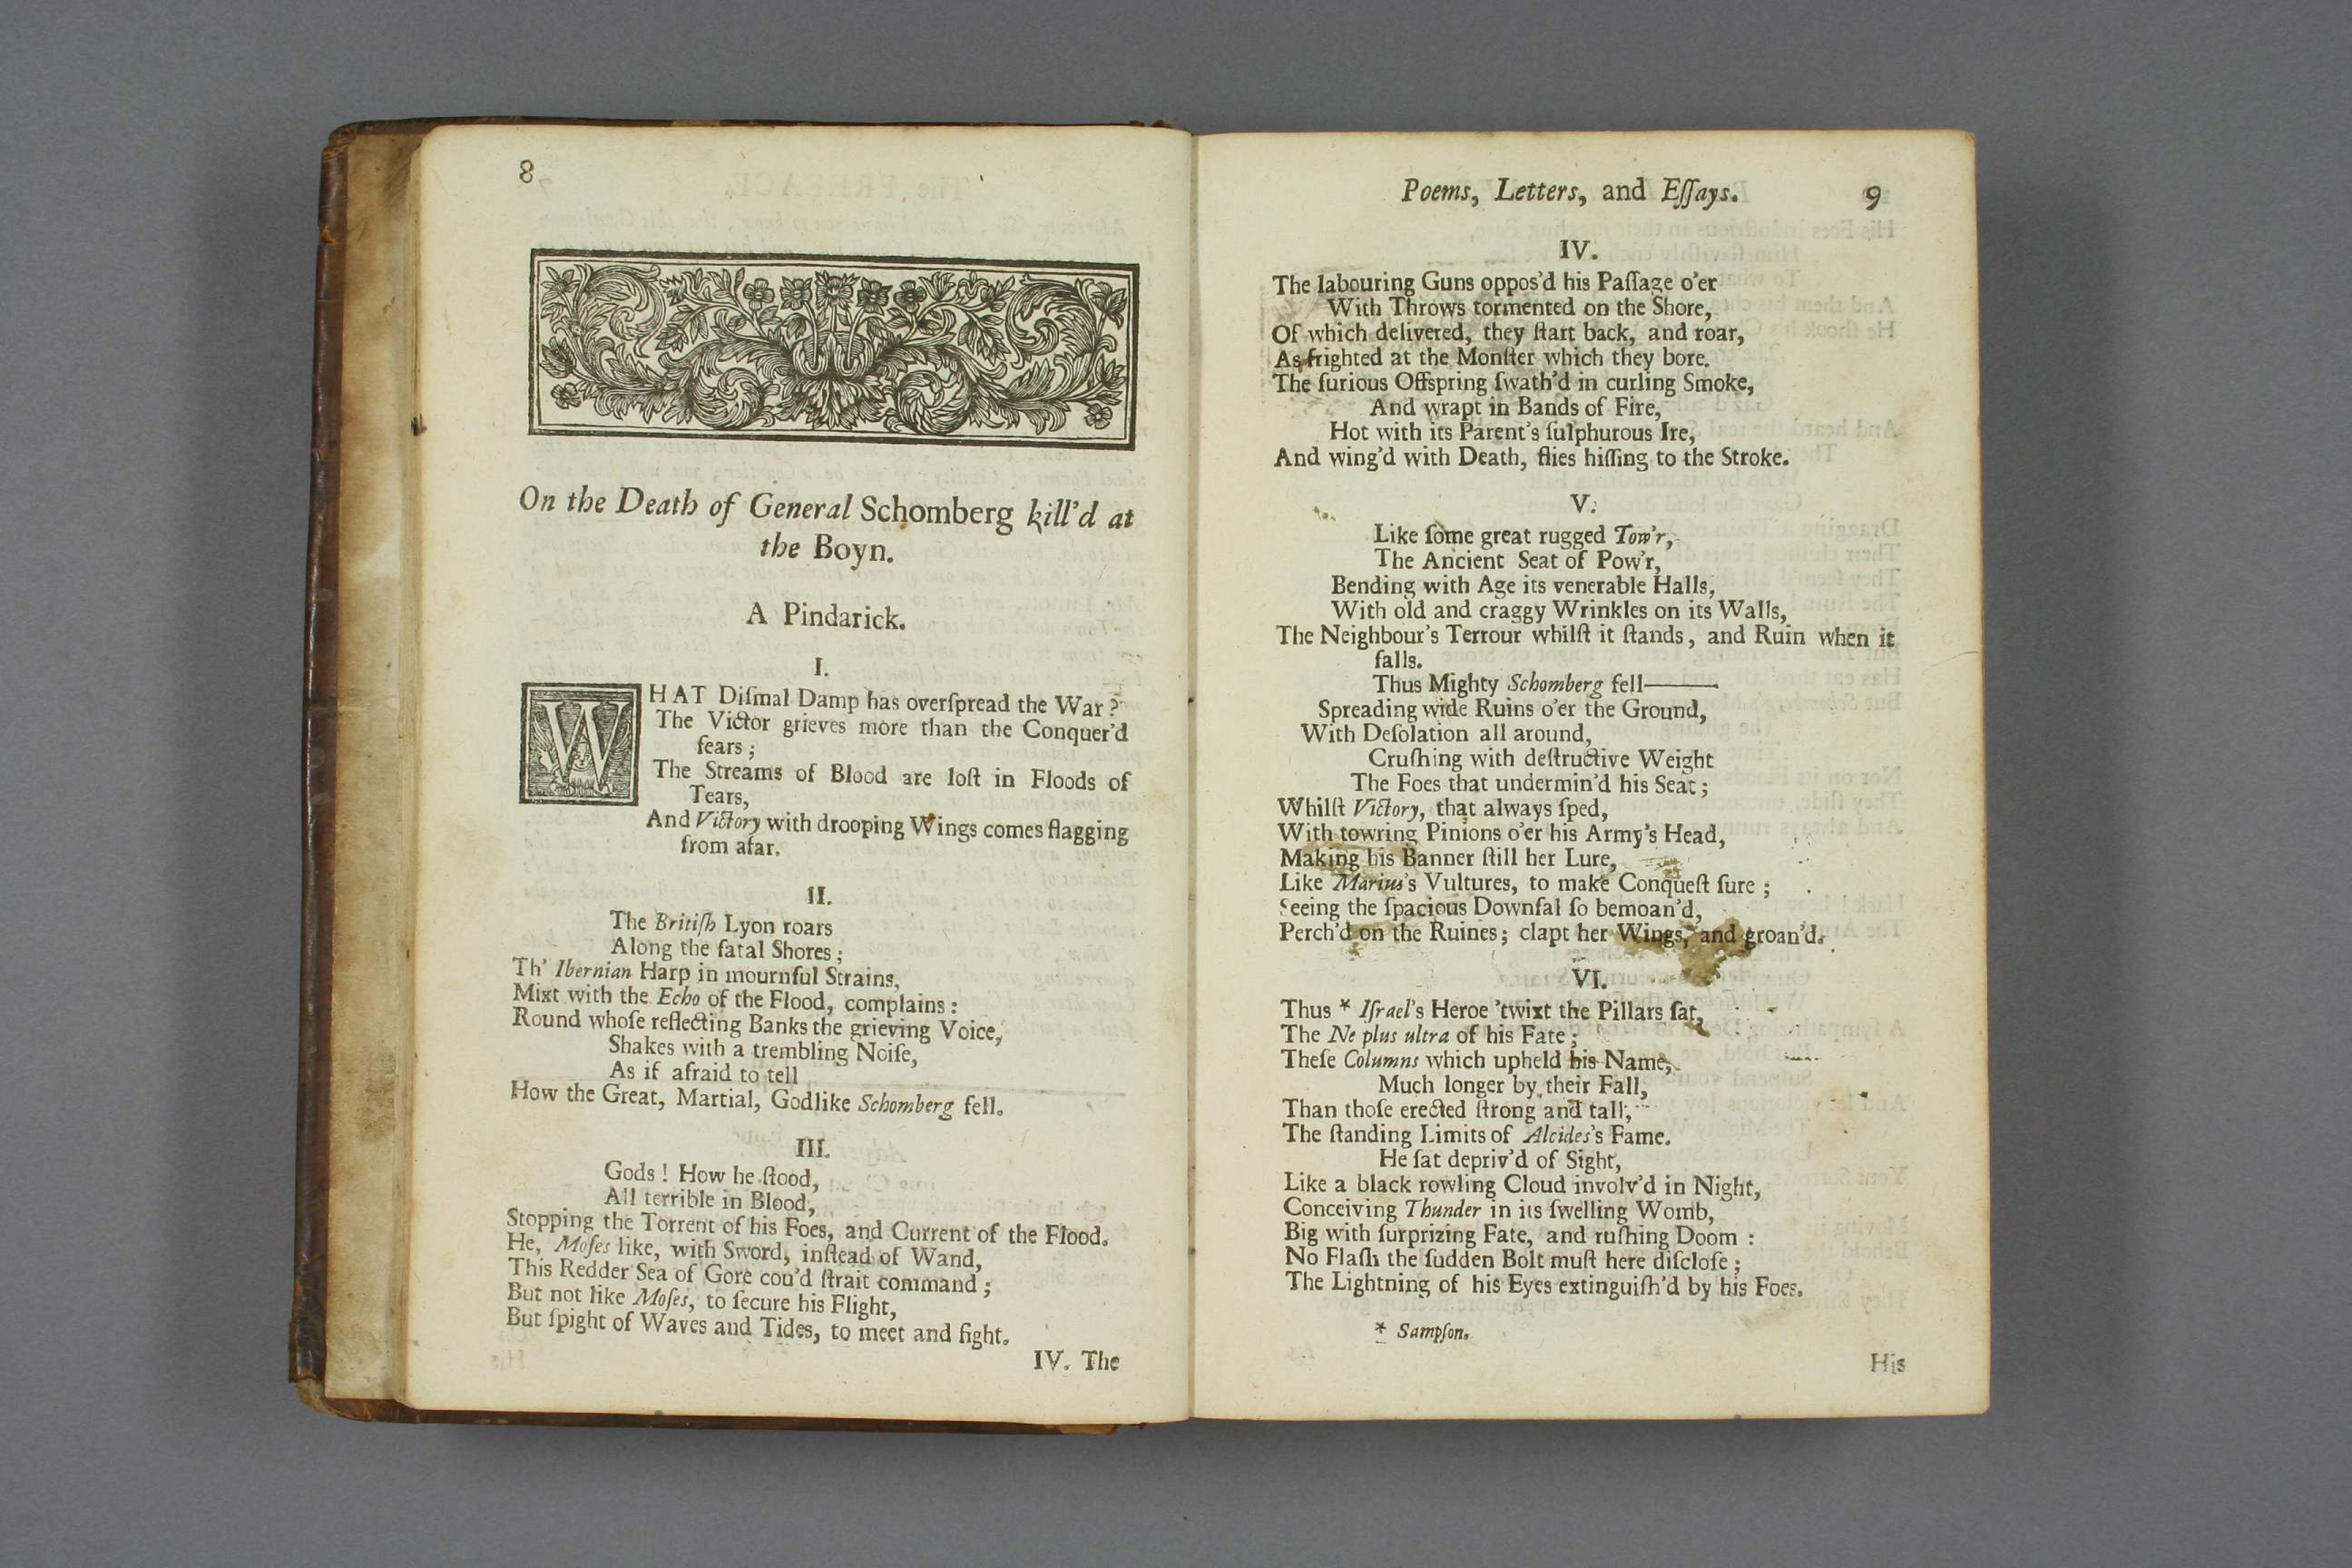 8
On the Death of General Schomberg kill'd at
the Boyn.
A Pindarick.
I.
WHAT Diſmal Damp has overſpread the War?
The Victor grieves more than the Conquer'd
fears;
The Streams of Blood are loſt in Floods of
Tears,
And Victory with drooping Wings comes flagging
from afar.
II.
The Britiſh Lyon roars
Along the fatal Shores;
Th' Ibernian Harp in mournful Strains,
Mixt with the Echo of the Flood, complains:
Round whoſe reflecting Banks the grieving Voice,
Shakes with a trembling Noiſe,
As if afraid to tell
How the Great, Martial, Godlike Schomberg fell.
III.
Gods! How he ſtood,
All terrible in Blood,
Stopping the Torrent of his Foes, and Current of the Flood.
He, Moſes like, with Sword, inſtead of Wand,
This Redder Sea of Gore cou'd ſtrait command;
But not like Moſes, to ſecure his Flight,
But ſpight of Waves and Tides, to meet and fight.
IV. The
Poems, Letters, and Eſſays. 9
IV.
The labouring Guns oppos'd his Paſſage o'er
With Throws tormented on the Shore,
Of which delivered, they ſtart back, and roar,
As frighted at the Monſter which they bore.
The furious Offspring ſwath'd in curling Smoke,
And wrapt in Bands of Fire,
Hot with its Parent's ſulphurous Ire,
And wing'd with Death, flies hiſſing to the Stroke.
V.
Like ſome great rugged Tow'r,
The Ancient Seat of Pow'r,
Bending with Age its venerable Halls,
With old and craggy Wrinkles on its Walls,
The Neighbour's Terrour whilſt it ſtands, and Ruin when it
falls.
Thus Mighty Schomberg fell———
Spreading wide Ruins o'er the Ground,
With Deſolation all around,
Cruſhing with deſtructive Weight
The Foes that undermin'd his Seat;
Whilſt Victory, that always ſped,
With towring Pinions o'er his Army's Head,
Making his Banner ſtill her Lure,
Like Marius's Vultures, to make Conqueſt ſure;
Seeing the ſpacious Downfal ſo bemoan'd,
Perch'd on the Ruines; clapt her Wings, and groan'd.
VI.
Thus * Iſrael's Heroe 'twixt the Pillars ſat,
The Ne plus ultra of his Fate;
Theſe Columns which upheld his Name,
Much longer by their Fall,
Than thoſe erected ſtrong and tall,
The ſtanding Limits of Alcides's Fame.
He ſat depriv'd of Sight,
Like a black rowling Cloud involv'd in Night,
Conceiving Thunder in its ſwelling Womb,
Big with ſurprizing Fate, and ruſhing Doom:
No Flaſh the ſudden Bolt muſt here diſcloſe;
The Lightning of his Eyes extinguiſh'd by his Foes.
* Sampſon.
His